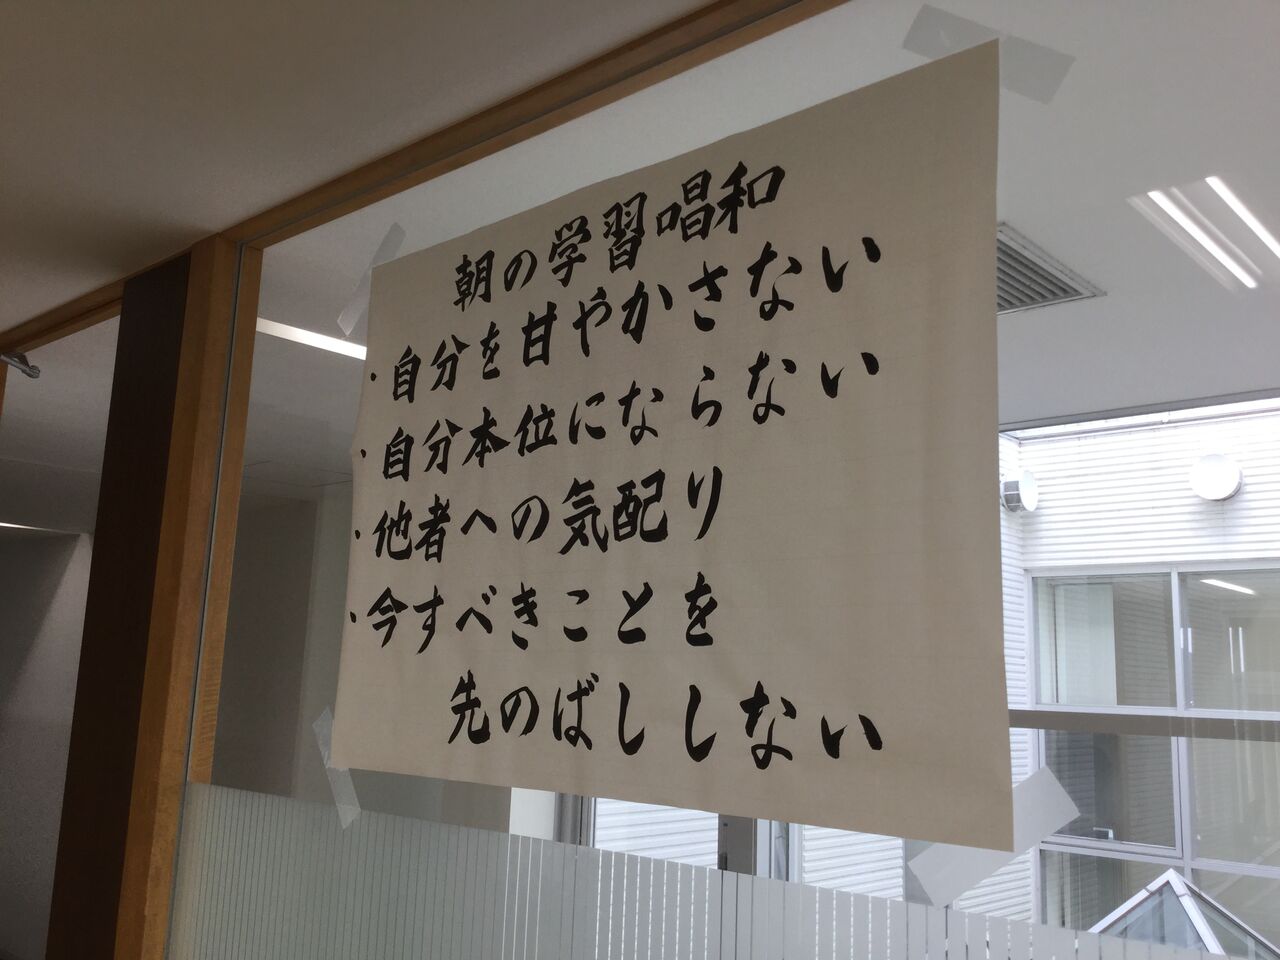 朝の学習唱和
・自分を甘やかさない
・自分本位にならない
・他者への気配り
・今すべきことを
先のばししない